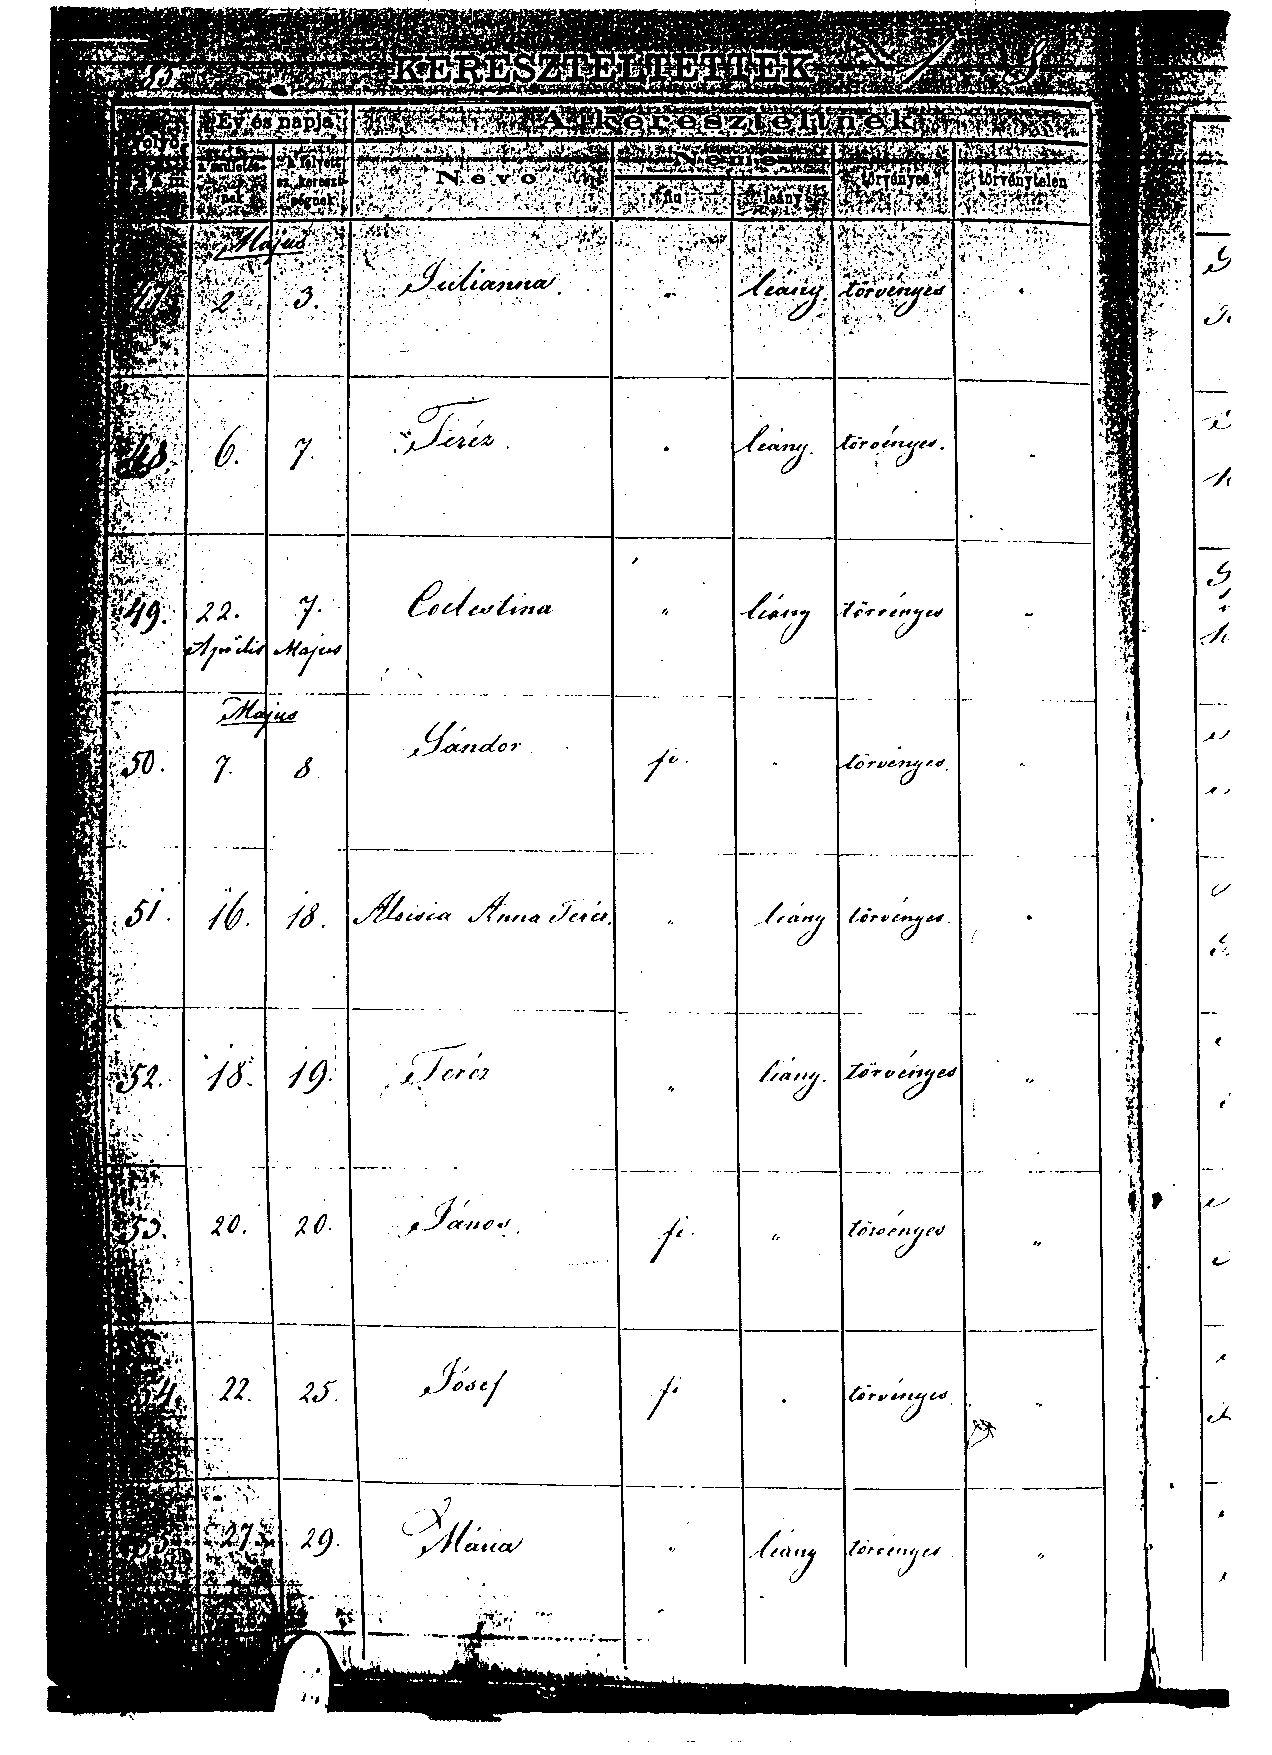 KERESZTELTETTEK
Év és napja A kereszteltnek
Neve Neme törvényes törvénytelen
fiu leány
Majus
47. 2. 3. Julianna. " leány. törvényes "
48. 6. 7. Teréz. " leány. törvényes. "
49. 22. 7. Coelestina " leány törvényes "
Aprilis Majus
Majus
50. 7. 8 Sándor fi. " törvényes. "
51. 16. 18. Aloisia Anna Teréz. " leány törvényes. "
52. 18. 19. Teréz " leány. törvényes "
53. 20. 20. János. fi. " törvényes "
54. 22. 25. Jósef fi " törvényes "
27. 29. Mária " leány törvényes "